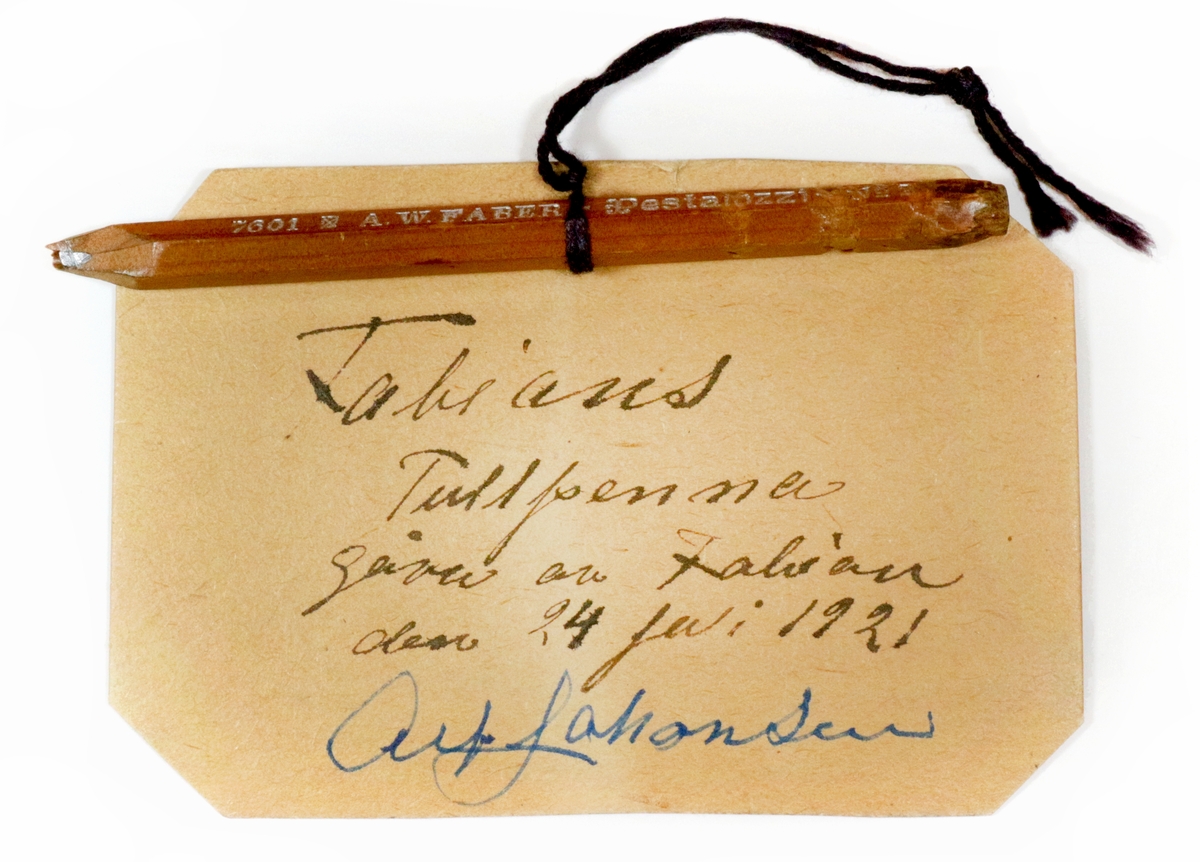 7601 A.W. FABER Pestalozzi
Fabians
Tullpenna
gåva av Fabian
den 24 juli 1921
Alf Johansen